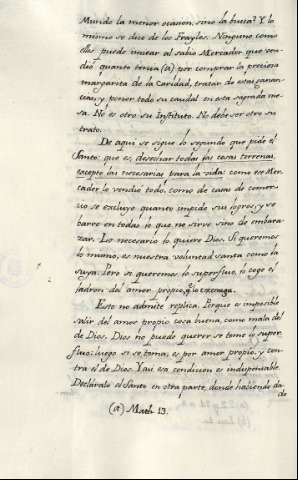 Mundo la menor ocasion, sino la huita? Y lo
mismo se dice de los Frayles. Ninguno como
ellos puede imitar al sabio Mercader, que ven-
dió quanto tenia (a) por comprar la preciosa
margarita de la Caridad, tratar de estas ganan-
cias, y poner todo su caudal en esta sagrada me-
sa. No es otro su Instituto. No debe ser otro su
trato.
De aqui se sigue lo segundo que pide el
Santo: que es, desechar todas las cosas terrenas,
excepto las necesarias para la vida: como ese Mer-
cader lo vendió todo, como de casa de comer-
cio se excluye quanto impide sus logros, y se
barre en todas lo que no sirve sino de embara-
zar. Lo necesario lo quiere Dios. Si queremos
lo mismo, es nuestra voluntad santa como la
suya. Pero si queremos lo superfluo, lo coge el
ladron del amor propio, q.e lo
Esto no admite replica. Porque es imposible
salir del amor propio cosa buena, como mala del
de Dios. Dios no puede querer se tome lo super-
fluo: luego si se toma, es por amor propio, y con-
tra el de Dios. Y asi esa condicion es indispensable.
Declarólo el Santo en otra parte, donde haciendo da
do
(a) Math. 13.